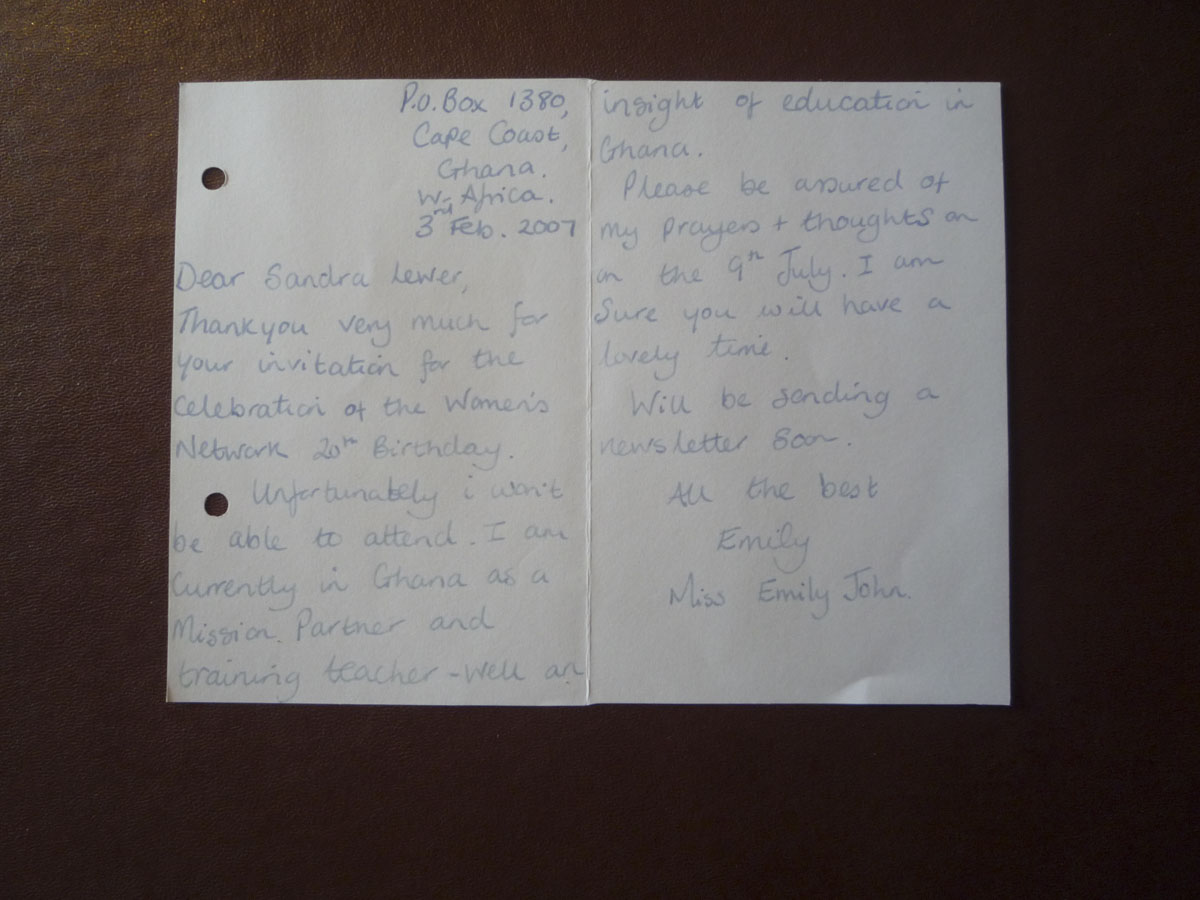 P.O. Box 1380,
Cape Coast,
Ghana.
W. Africa.
3rd Feb. 2007
Dear Sandra Lewer,
Thankyou very much for
your invitation for the
Celebration of the Women's
Network 20th Birthday.
Unfortunately i won't
be able to attend. I am
Currently in Ghana as a
Mission Partner and
training teacher - Well an
insight of education in
Ghana.
Please be assured of
my prayers + thoughts on
on the 9th July. I am
Sure you will have a
lovely time.
Will be sending a
newsletter soon.
All the best
Emily
Miss Emily John.